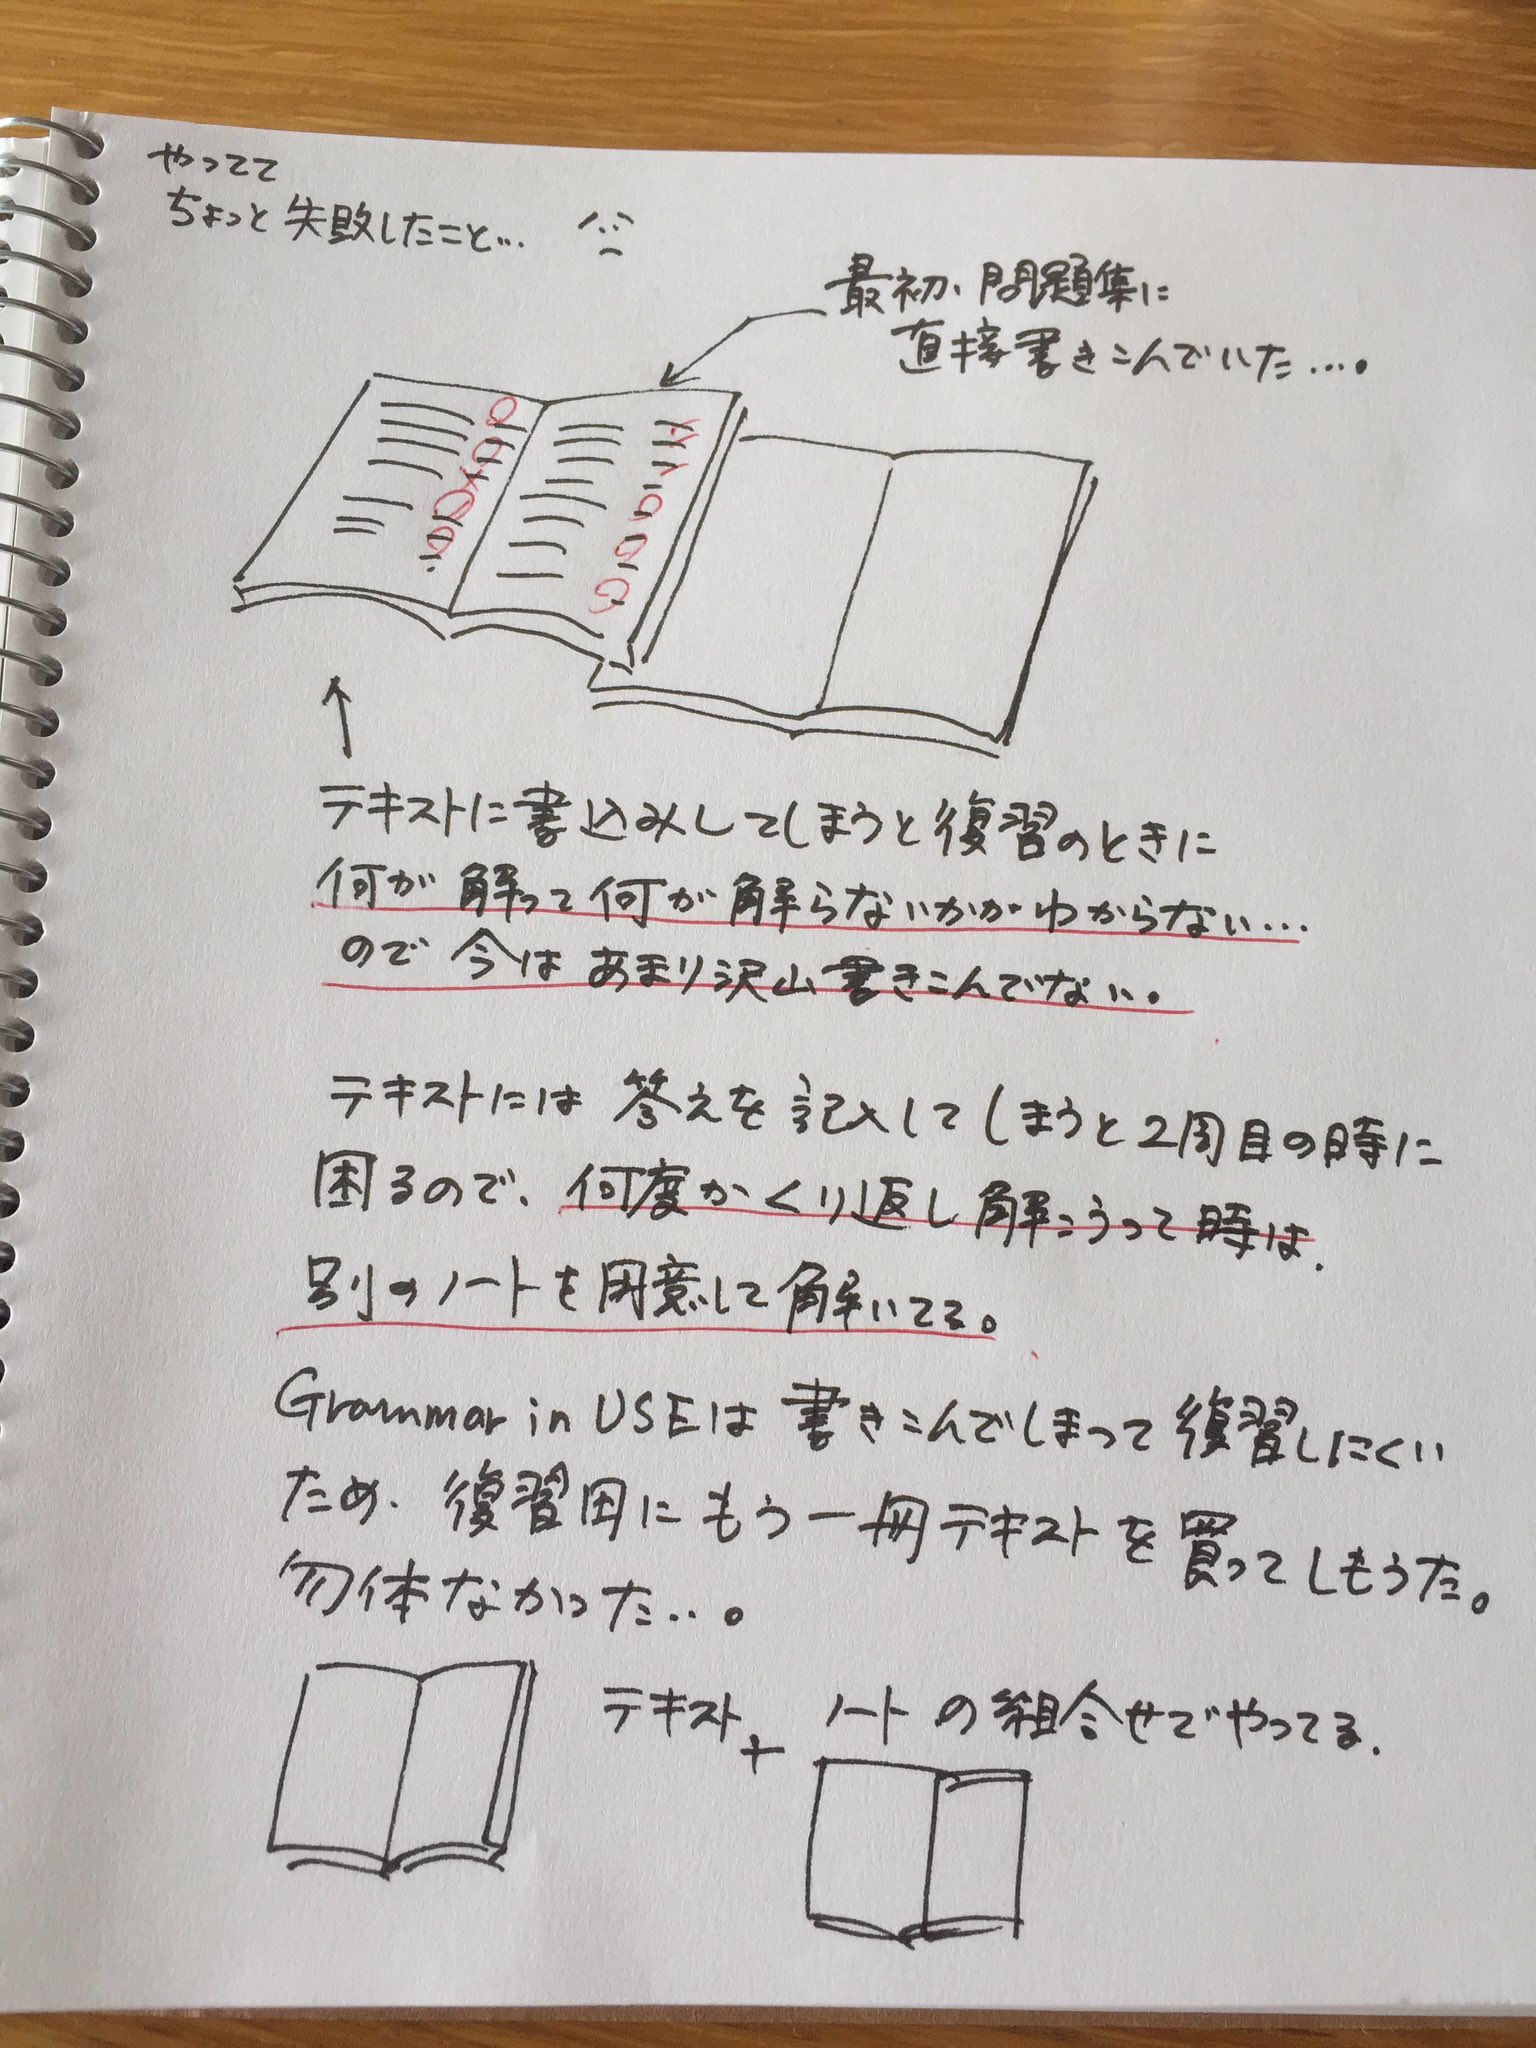 やってて
ちょっと失敗したこと…
最初、問題集に
直接書きこんでいた…。
テキストに書込みしてしまうと復習のときに
何が解って何が解らないかがわからない…
ので今はあまり沢山書きこんでない。
テキストには答えを記入してしまうと2周目の時に
困るので、何度かくり返し解こうって時は、
別のノートを用意して解いてる。
Grammar in USEは書きこんでしまって復習しにくい
ため、復習用にもう一冊テキストを買ってしもうた。
勿体なかった…。
テキスト+ノートの組合せでやってる。